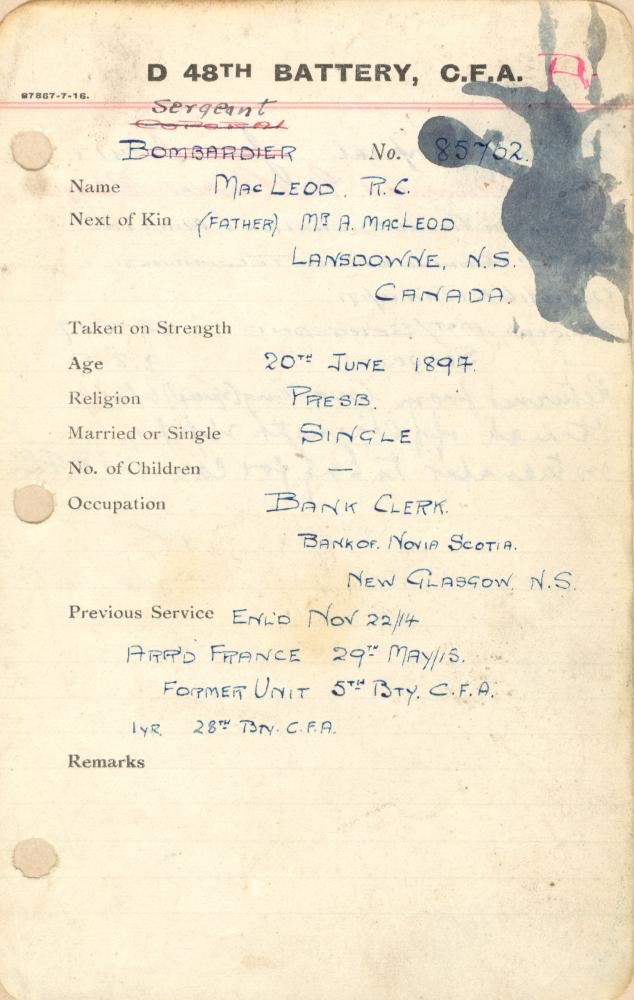 D 48TH BATTERY, C.F.A. D
97867-7-16.
Sergeant
CORPORAL
BOMBARDIER No. 85762.
Name MACLEOD. R.C.
Next of Kin (FATHER) MR A. MACLEOD
LANSDOWNE, N.S.
CANADA.
Taken on Strength
Age 20TH JUNE 1897.
Religion PRESB.
Married or Single SINGLE
No. of Children —
Occupation BANK CLERK.
BANK OF NOVIA SCOTIA.
NEW GLASGOW. N.S.
Previous Service ENL'D NOV 22/14
ARR'D FRANCE 29TH MAY/15.
FORMER UNIT 5TH BTY. C.F.A.
1YR. 28TH BTY. C.F.A.
Remarks